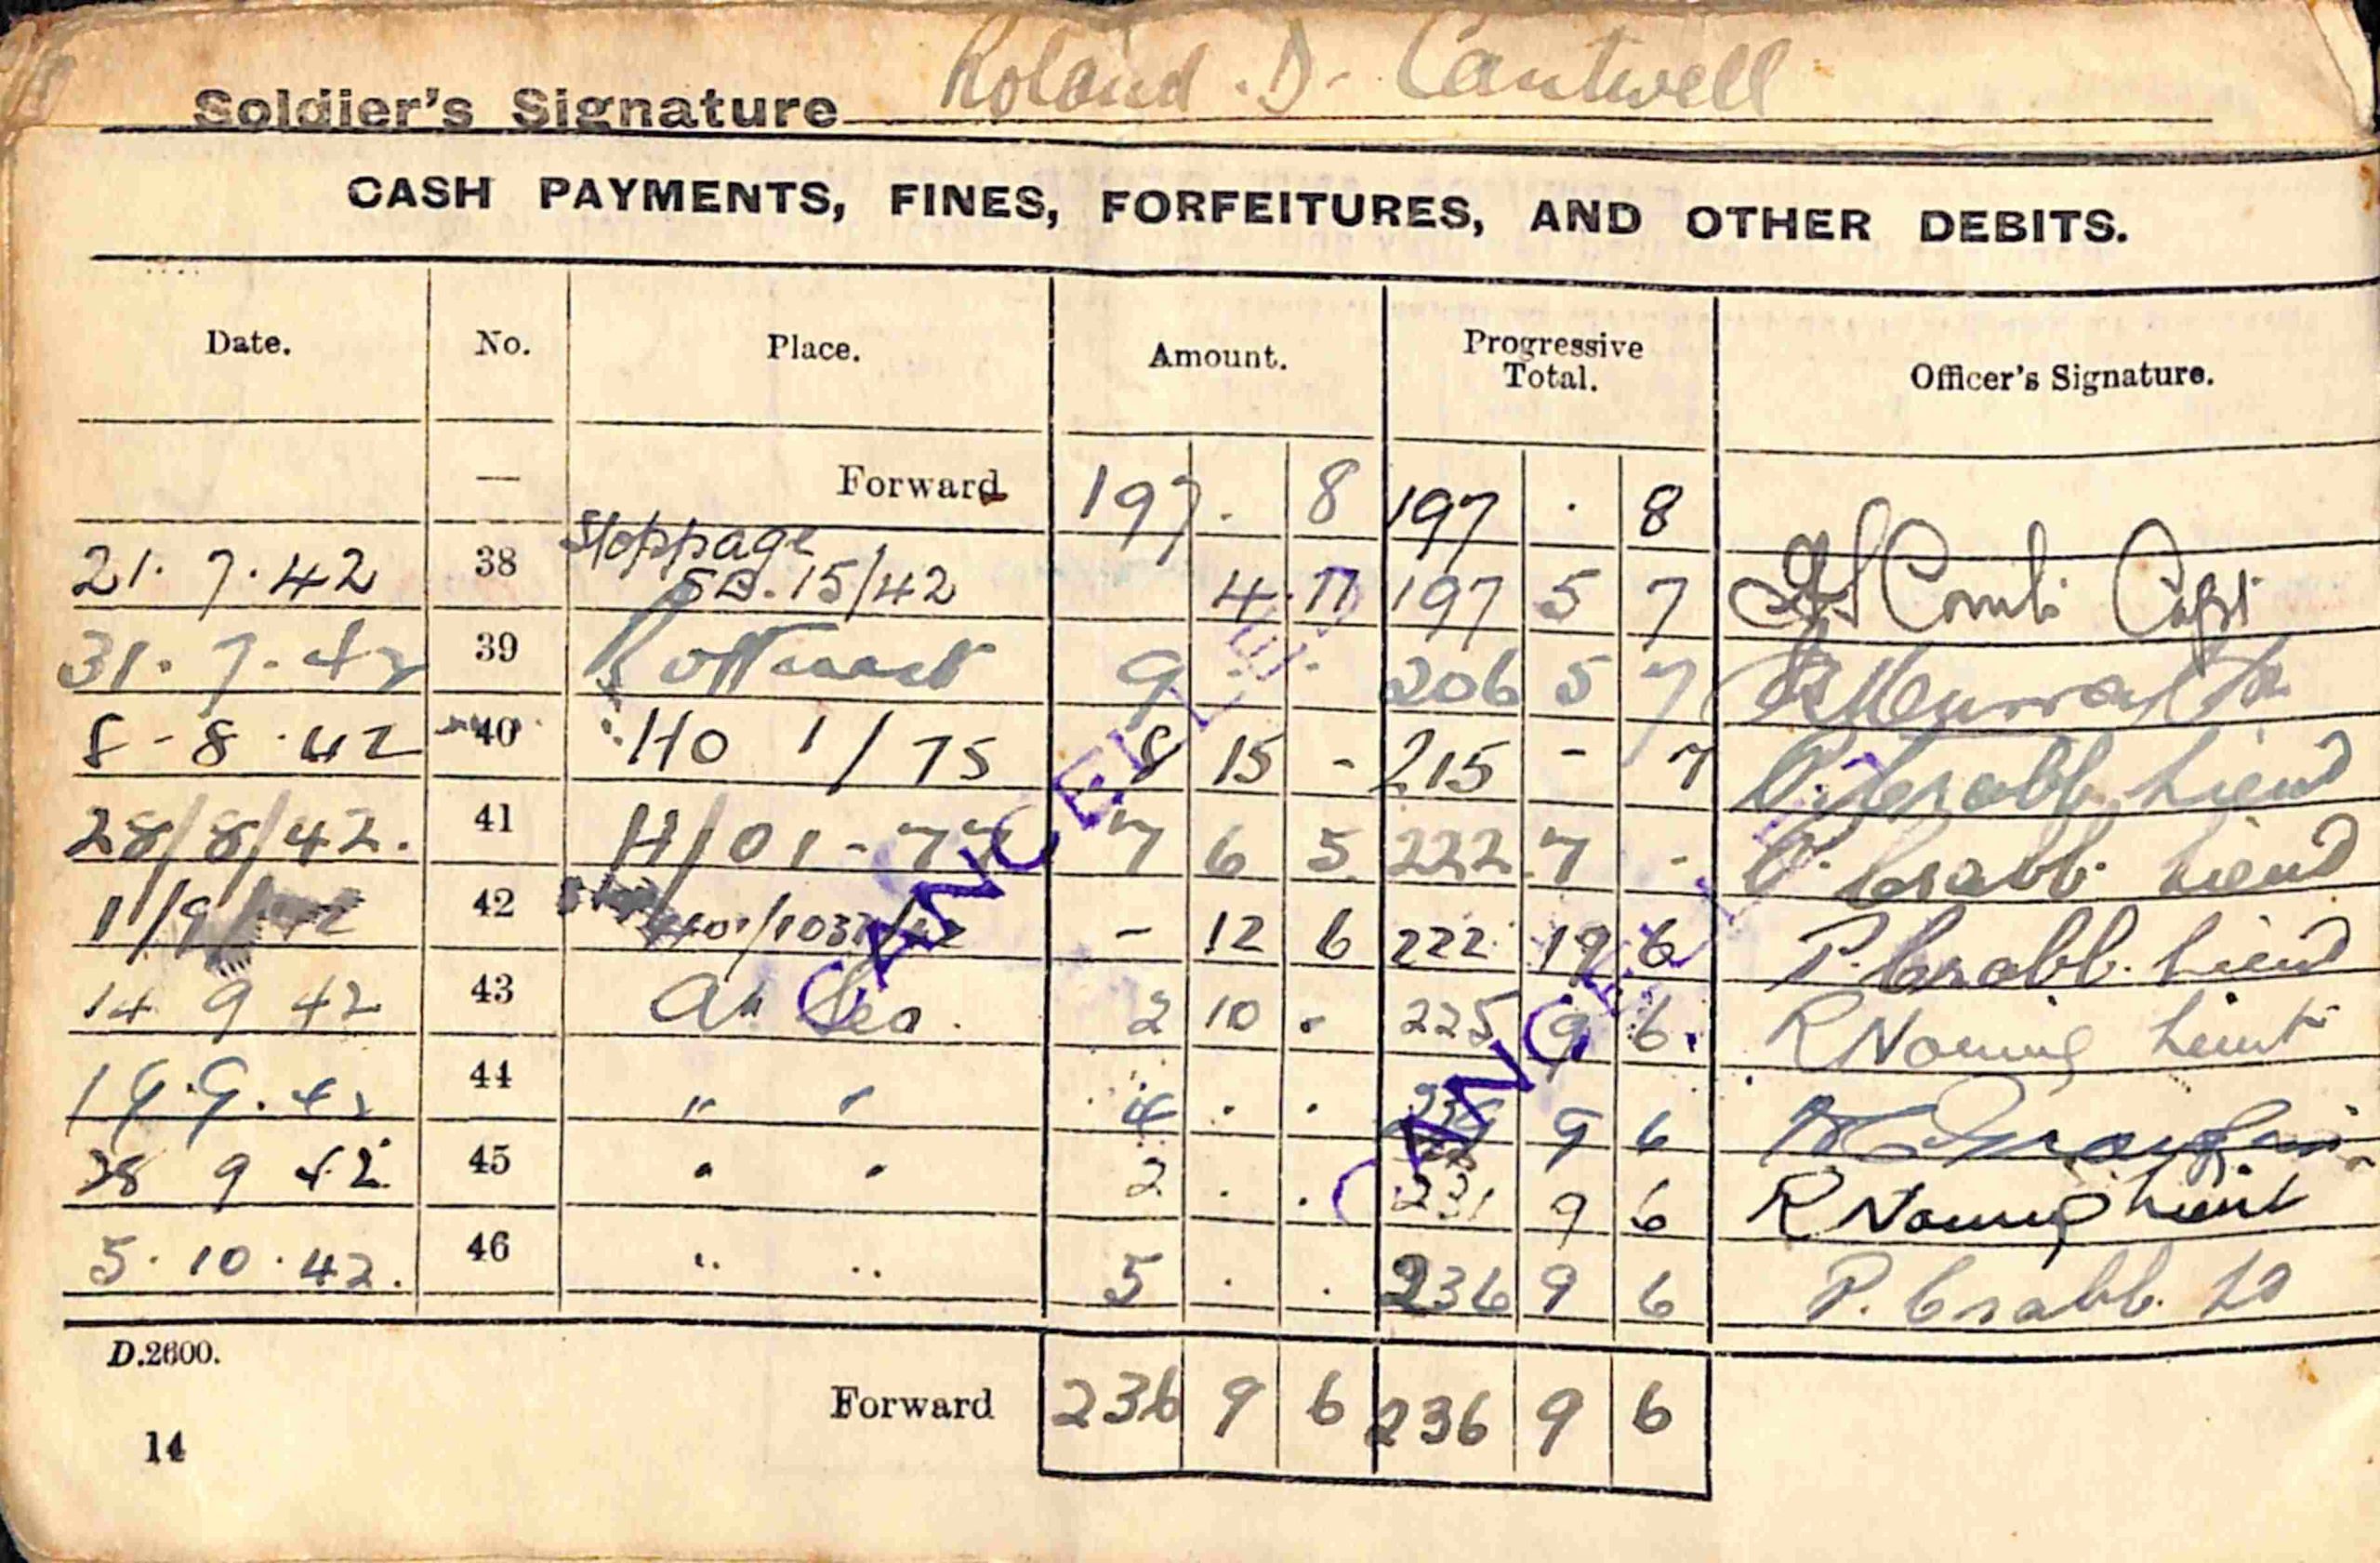 Soldier's Signature Roland . D. Cantwell
CASH PAYMENTS, FINES, FORFEITURES, AND OTHER DEBITS.
Date. No. Place. Amount. Progressive Total. Officer's Signature.
— Forward 197 . 8 197 . 8
Stoppage
21. 7. 42 38 SB. 15/42 4. 11 197 5 7 Capt
31. 7. 42 39 Rottnest 9 . 206 5 7
8 - 8 . 42 40 HO 1 / 75 8 15 - 215 - 7 P. Crabb. Lieut
28/8/42. 41 H/O 1 - 77 7 6 5 222 7 - P. Crabb. Lieut
1/9/42 42 - 12 6 222 19 6 P. Crabb. Lieut
14 9 42 43 At Sea. 2 10 . 225 9 6. R Lieut
19.9.42 44 " " 4 . . 229 9 6
28 9 42 45 " " 2 . . 231 9 6 R Lieut
5. 10 . 42. 46 " " 5 . . 236 9 6 P. Crabb. Lt
D.2600.
Forward 236 9 6 236 9 6
14
CANCELLED
CANCELLED